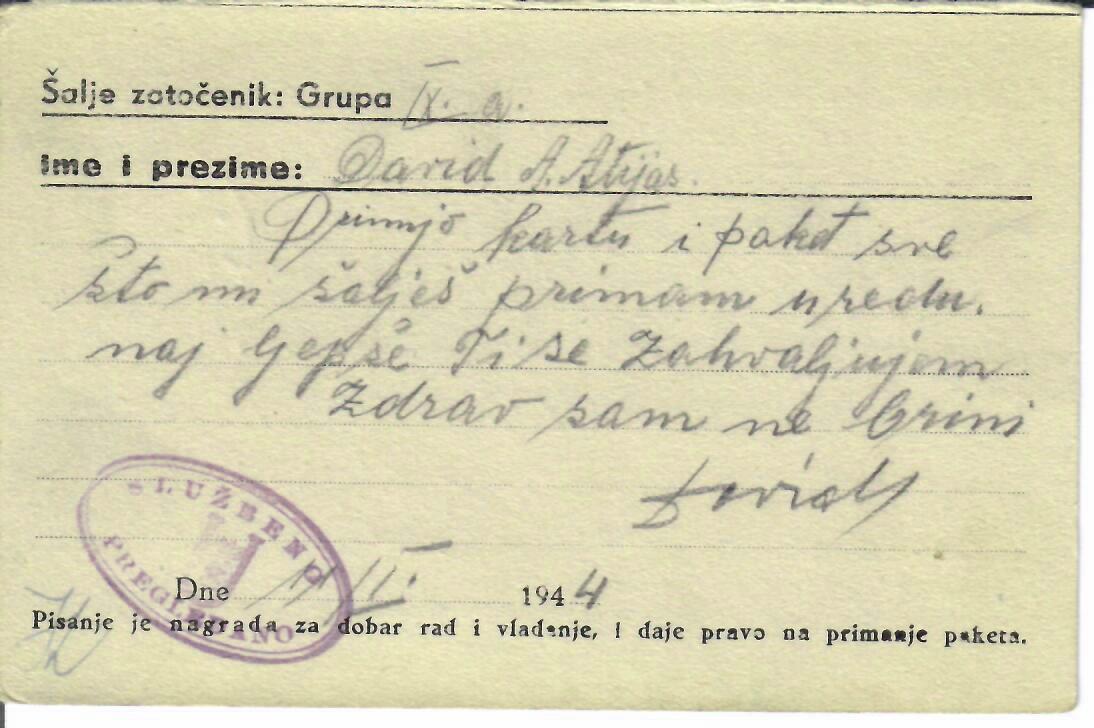 Šalje zatočenik: Grupa IX. a.
Ime i prezime: David A. Atijas.
Primjo kartu i paket sve
što mi šalješ primam uredu.
naj ljepše Ti se zahvaljujem
Zdrav sam ne brini
David
SLUŽBENO
U
PREGLEDANO
Dne 11 II. 1944
Pisanje je nagrada za dobar rad i vladanje, i daje pravo na primanje paketa.